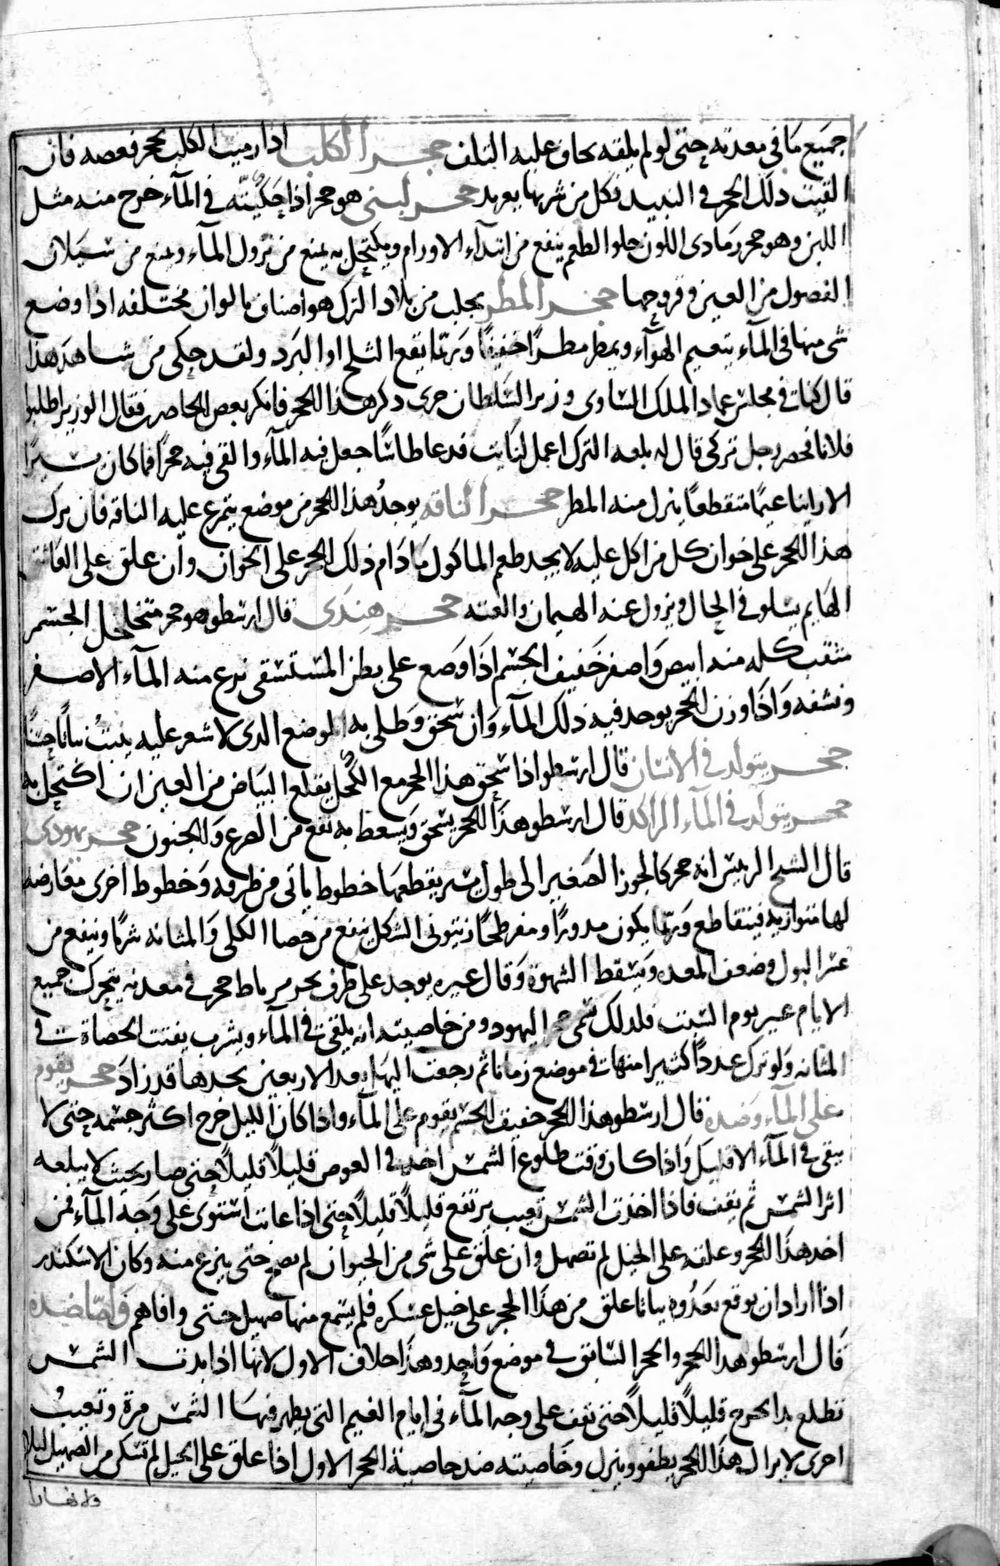 جميع ما في معدته حتى لو لم يلقه يخاف عليه التلف حجر الكلب اذا رميت الكلب بحجر فعضه فان
القيت ذلك الحجر في النبيذ فكل من شربها يعربد حجر لبني هو حجر اذا حككته في الماء خرج منه مثل
اللبن وهو حجر رمادى اللون حلو الطعم ينفع من ابتداء الاورام ويكتحل به يمنع من نزول الماء ويمنع من سيلان
الفضول من العين وقروحها حجر المطر يجلب من بلاد الترك هو اصناف بالوان مختلفه اذا وضع
شى منها في الماء يتغيم الهوآء ويمطر مطرًا خفيفًا وربما يقع الثلج او البرد ولقد حكى من شاهد هذا
قال كنا في مجلس عماد الملك الساوى وزير السلطان جرى ذكر هذا الحجر فانكر بعض الحاضرين فقال الوزير اطلبوا
فلانا فحضر رجل تركى قال له بلغه الترك اعمل لنا فدعا طاسًا جعل فيه الماء والقى فيه حجرًا فما كان يسيرًا
الا راينا غيمًا متقطعًا ينزل منه المطر حجر الناقه يوجد هذا الحجر من موضع يتمرغ عليه الناقة فان ترك
هذا الحجر على خوان كل من اكل عليه لا يجد طعم الماكول ما دام ذلك الحجر على الخوان وان علق على العاشق
الهايم يسلو في الحال ويزول عنه الهيمان والعته حجر هندى قال ارسطو هو حجر متخلخل الجسم
مثقب كله منه ابيض واصفر خفيف الجسم اذا وضع على بطن المستسقى نزع منه الماء الاصفر
ونشفه واذا وزن الحجر يوجد فيه ذلك الماء وان سحق وطلى به الموضع الذى لا شعر عليه ينبت نباتًا حسنًا
حجر يتولد في الانسان قال ارسطو اذا سحق هذا الحجر مع الكحل يقلع البياض من العين ان اكتحل به
حجر يتولد في الماء الراكد قال ارسطو هذا الحجر يسحق ويسعط به نفع من الصرع والجنون حجر يهودى
قال الشيخ الرئيس انه حجر كالجوز الصغير الى طول يسير يقطعها خطوط ياتى من طرفه وخطوط اخرى معارضه
لها متوازيه فيتقاطع وربما يكون مدورًا ومفرطحًا زيتونى الشكل ينفع من حصا الكلى والمثانه شربًا وينفع من
عسر البول وضعف المعده ويسقط الشهوة وقال غيره يوجد على طرف بحر حجر في معدنه يتحرك جميع
الايام غير يوم السبت فلذلك سمى حجر اليهود ومن خاصيته ان يلقى في الماء ويشرب يفتت الحصاة في
المثانه ولو ترك عددًا كثيرا منها في موضع زمانا ثم رجعت اليها بعد الاربعين تجدها قد زاد حجر يقوم
على الماء وضده قال ارسطو هذا الحجر خفيف الجسم يقوم على الماء واذا كان الليل خرج اكثر جسمه حتى لا
يبقى في الماء الا قليل واذا كان وقت طلوع الشمس اخذ في الغوص قليلًا قليلًا حتى صار بحيث لا يبلغه
اثر الشمس ثم يقف فاذا اخذت الشمس تغيب يرتفع قليلًا قليلًا حتى اذا غابت استوى على وجه الماء فمن
اخذ هذا الحجر وعلقه على الخيل لم تصهل وان علق على شى من الحيوان لم يصح حتى ينزع منه وكان الاسكندر
اذا اراد ان يوقع بعدوه بياتا علق من هذا الحجر على خيل عسكره فلم يسمع منها صهيل حتى وافاهم واما ضده
قال ارسطو هذا الحجر والحجر السابق في موضع واحد وهذا خلاف الاول لانها اذا بدت الشمس
تطلع بدا يخرج قليلًا قليلًا حتى تقف على وجه الماء في ايام الغيم التى يظهر فيها الشمس مرة وتغيبُ
اخرى لا يزال هذا الحجر يطفو وينزل وخاصيته ضد خاصية الحجر الاول اذا علق على الخيل لم تسكن من الصهيل ليلا
ولا نهارا